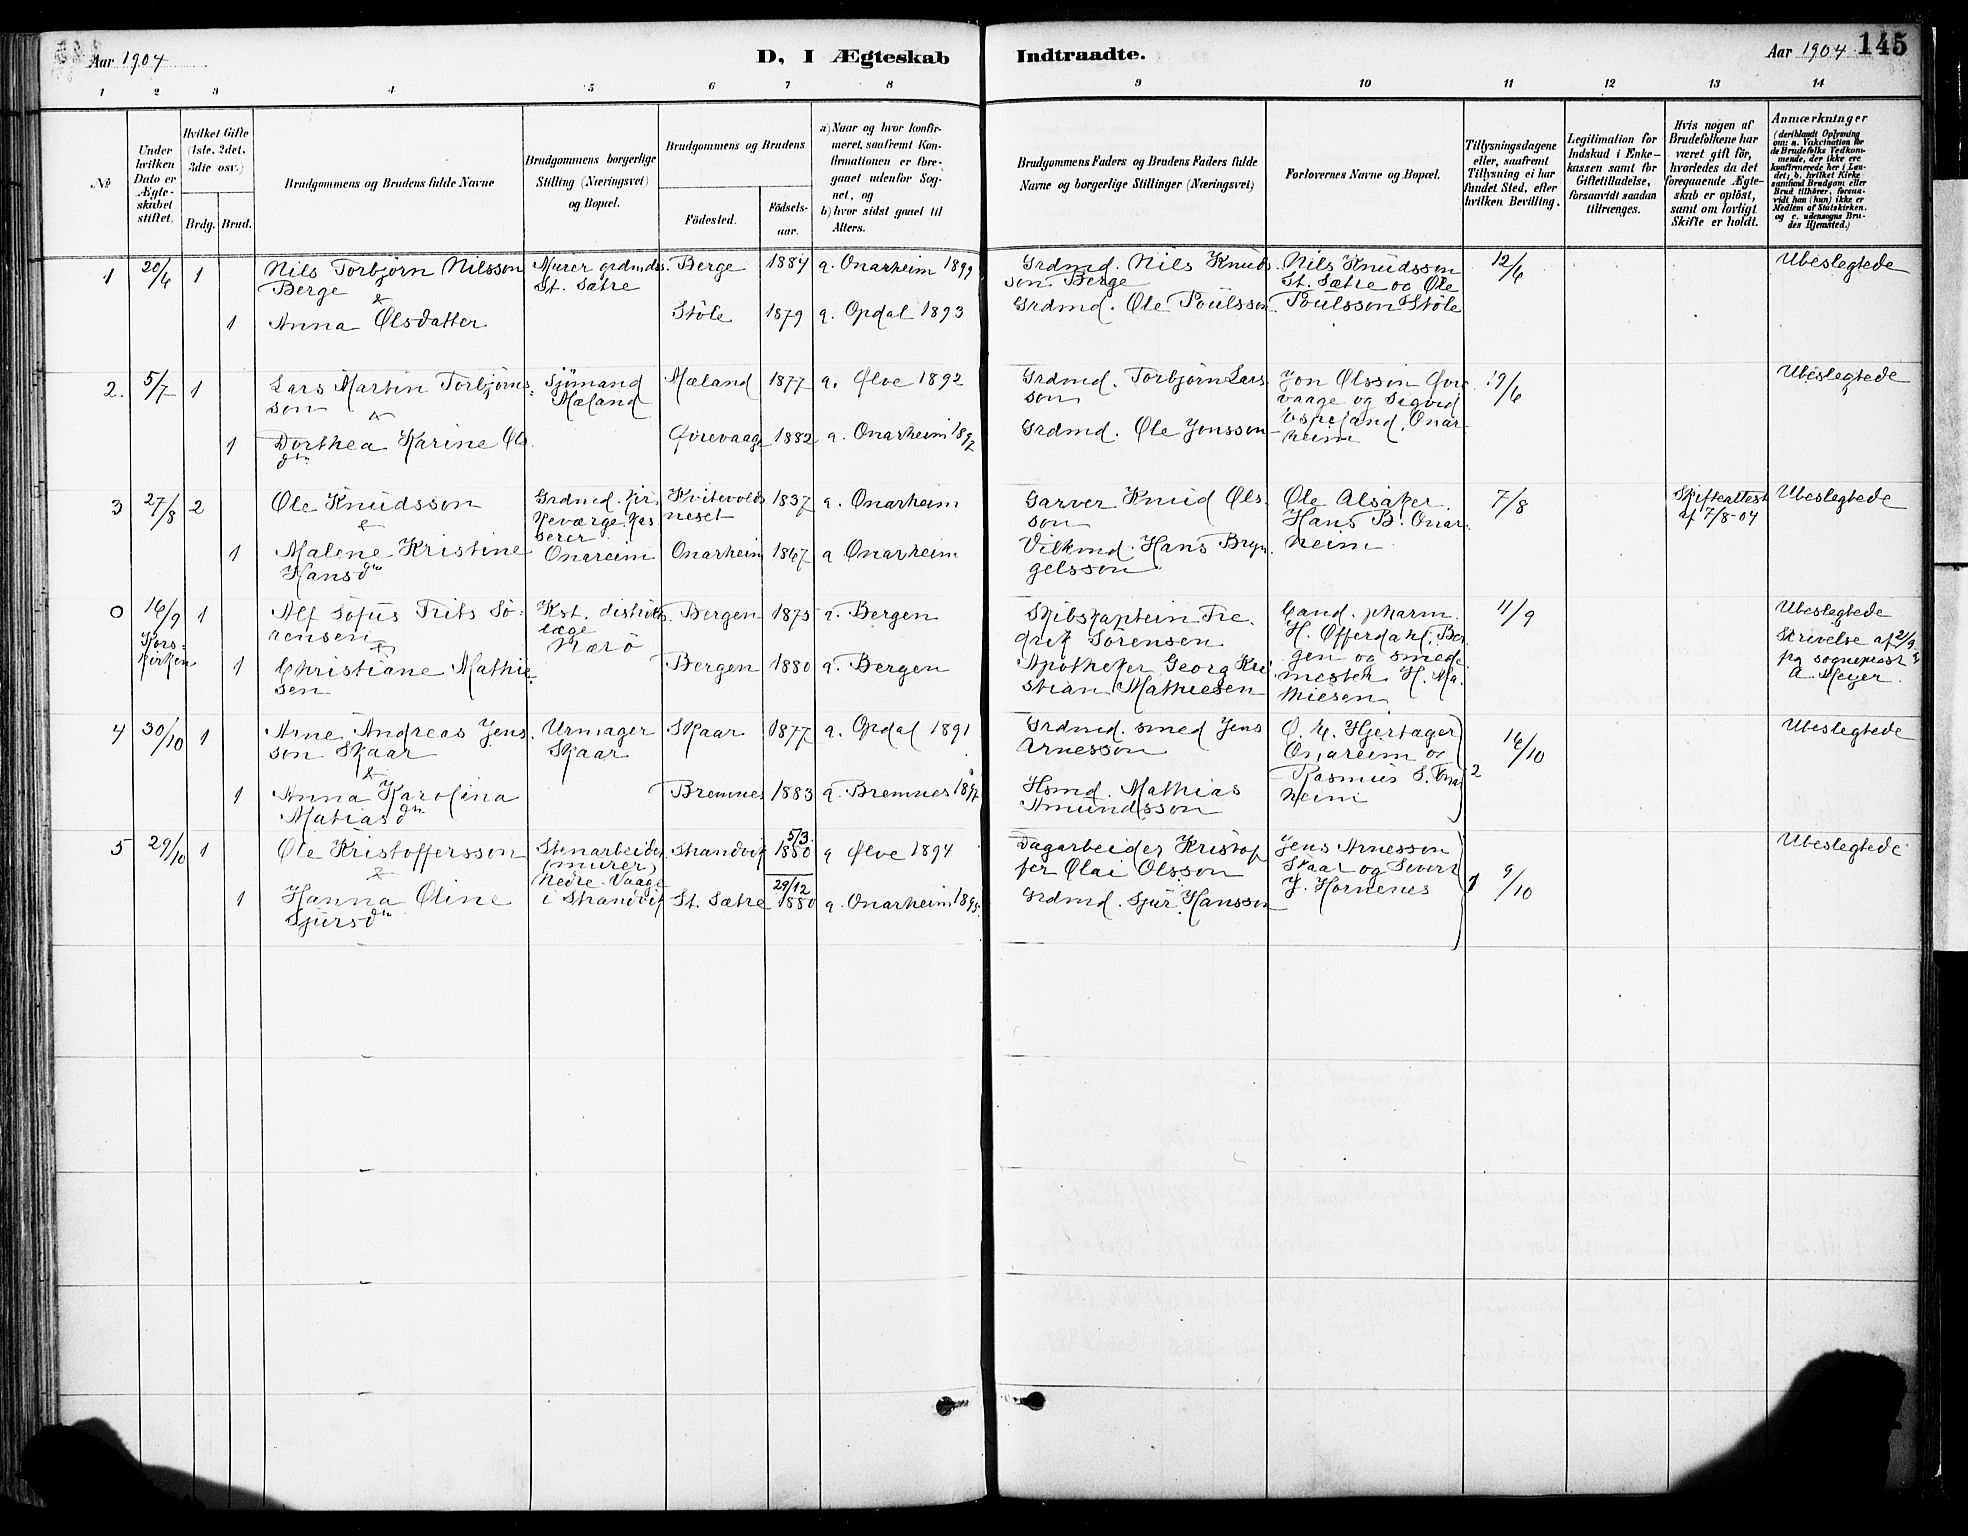 Aar 1904
D, I Ægteskab
Indtraadte.
Aar 1904
145
1 2 3 4 5 6 7 8 9 10 11 12 13 14
No
Under hvilken Dato er Ægteskabet stiftet.
Hvilket Gifte (1ste, 2det, 3die osv.)
Brdg.
Brud.
Brudgommens og Brudens fulde Navne
Brudgommens borgerlige Stilling (Næringsvei) og Bopæl.
Brudgommens og Brudens
Födested.
Födselsaar.
a) Naar og hvor konfirmeret, saafremt Konfirmationen er foregaaet udenför Sognet, og
b) hvor sidst gaaet til Alters.
Brudgommens Faders og Brudens Faders fulde Navne og borgerlige Stillinger (Næringsvei)
Forlovernes Navne og Bopæl.
Tillysningsdagene eller, saafremt Tillysning ei har fundet Sted, efter hvilken Bevilling.
Legitimation for Indskud i Enkekassen samt for Giftetilladelse, forsaavidt saadan tiltrænges.
Hvis nogen af Brudefolkene har været gift för, hvorledes da det foregaaende Ægteskab er oplöst, samt om lovligt Skifte er holdt.
Anmærkninger
(deriblandt Oplysning om: a. Vaccination for de Brudefolks Vedkommende, der ikke ere konfirmerede her i Landet, b. hvilket Kirkesamfund Brudgom eller Brud tilhörer, forsaavidt han (hun) ikke er Medlem af Statskirken, og c. udensogns Brudes Hjemsted.)
1 20/6 1 Nils Torbjörn Nilsson Murer grdmds. Berge 1884 a. Onarheim 1899 Grdmd. Nils Knuds Nils Knudsson 12/6 Ubeslegtede
Berge St. Sætre son Berge St. Sætre og Ole
&
1 Anna Olsdatter Stöle 1879 a. Opdal 1893 Grdmd. Ole Poulsson Poulsson Stöle
2. 5/7 1 Lars Martin Torbjörns Sjömand Mæland 1877 a. Ølve 1892 Grdmd. Torbjörn Lars Jon Olsson Øvre 19/6 Ubeslegtede
son Mæland son vaage og Sigurd
&
1 Dorthea Karine Ols Øvrevaage 1882 a. Onarheim 1897 Grdmd. Ole Jonsson Espeland. Onar
dtr heim
3 27/8 2 Ole Knudsson Grdmd. kir Kvitevolds 1837 a. Onarheim Garver Knud Ols Ole Alsaker 7/8 Skifteattest Ubeslegtede
& keværge. kas neset son Hans B. Onar af 7/8-04
serer
1 Malene Kristine Onareim Onarheim 1867 a Onarheim Vilkmd. Hans Bryn heim
Hansdtr gelsson
0 16/9 1 Alf Sofus Frits Sö- Kst. distrikts Bergen 1875 a. Bergen Skibskaptein Fre Cand. pharm. 11/9 Ubeslegtede
Kors- rensen læge drik Sörensen H. Offerdahl, Ber Skrivelse af 21/9
kirken & Værö
1 Christiane Mathie Bergen 1880 a. Bergen Apotheker Georg Kri gen og smede fra sogneprest
sen stian Mathiesen mester H. Ma A. Meyer.
thiesen
4 30/10 1 Arne Andreas Jens Urmager Skaar 1877 a. Opdal 1891 Grdmd. smed Jens O. E. Hjertager 16/10 Ubeslegtede
son Skaar Skaar Arnesson Onareim og
&
1 Anna Karolina Bremnes 1883 a. Bremnes 1897 Hsmd. Mathias Rasmus S. Onar 2
Matiasdtr Amundsson heim
5 29/10 1 Ole Kristoffersson Stenarbeider Strandvik 5/3 1880 a Ølve 1894 Dagarbeider Kristof Jens Arnesson 9/10 Ubeslegtede
& (murer) fer Olai Olsson Skaar og Sivert
Nedre Vaage
1 Hanna Oline i Strandvik St. Sætre 29/12 1880 a. Onarheim 1895 Grdmd. Sjur Hansson J. Hornenes 1
Sjursdtr